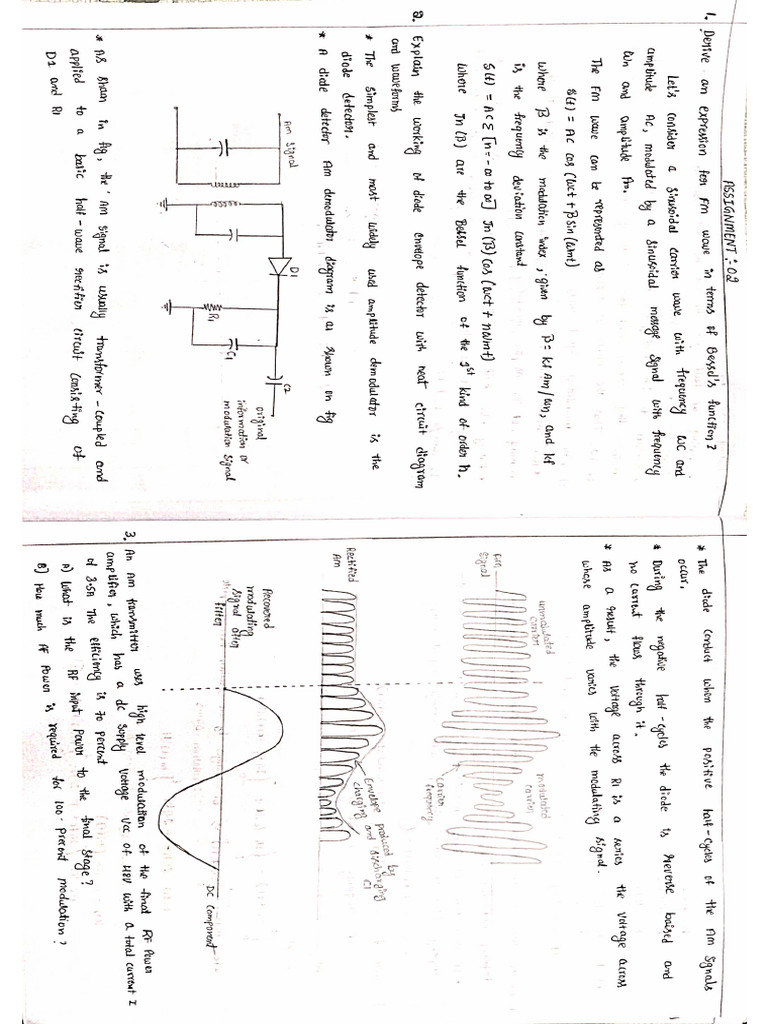 ASSIGNMENT:-02
1. Derive an expression for Fm wave in terms of Bessel's function?
Let's consider a sinusoidal carrier wave with frequency WC and
amplitude Ac, modulated by a sinusoidal message signal with frequency
Wn and amplitude Am.
The Fm wave can be represented as
s(t) = AC cos (Wct + β sin (Wmt)
where β is the modulation index, given by β = kf Am/wn, and kf
is the frequency deviation constant
S(t) = AC Σ [n = -∞ to ∞] Jn (β) Cos (wct + nWmt)
Where Jn (β) are the Bessel function of the 1st kind of order n.
2. Explain the working of diode envelope detector with neat circuit diagram
and waveforms
* The simplest and most widely used amplitude demodulator is the
diode detector.
* A diode detector Am demodulator diagram is as shown on fig
Am signal
D1
R1
C1
C2
original
information or
modulation signal
* As shown in fig, the Am signal is usually transformer-coupled and
applied to a basic half-wave rectifier circuit consisting of
D1 and R1
* The diode conduct when the positive half-cycles of the Am signals
occur.
* During the negative half-cycles the diode is reverse baised and
no current flows through it.
* As a result, the voltage across R1 is a series the voltage across
whose amplitude varies with the modulating signal.
signal
unmodulated
carrier
modulated
carrier
carrier
frequency
Rectified
Am
Envelope produced by
charging and discharging
C1
Recovered
modulating
signal after
filter
DC component
3. An Am transmitter uses high level modulation of the final RF Power
amplifier, which has a dc supply voltage Vcc of 48V with a total current I
of 3.5A The efficiency is 70 percent
A) What is the RF input Power to the final stage?
B) How much AF Power is required for 100 Precent modulation?